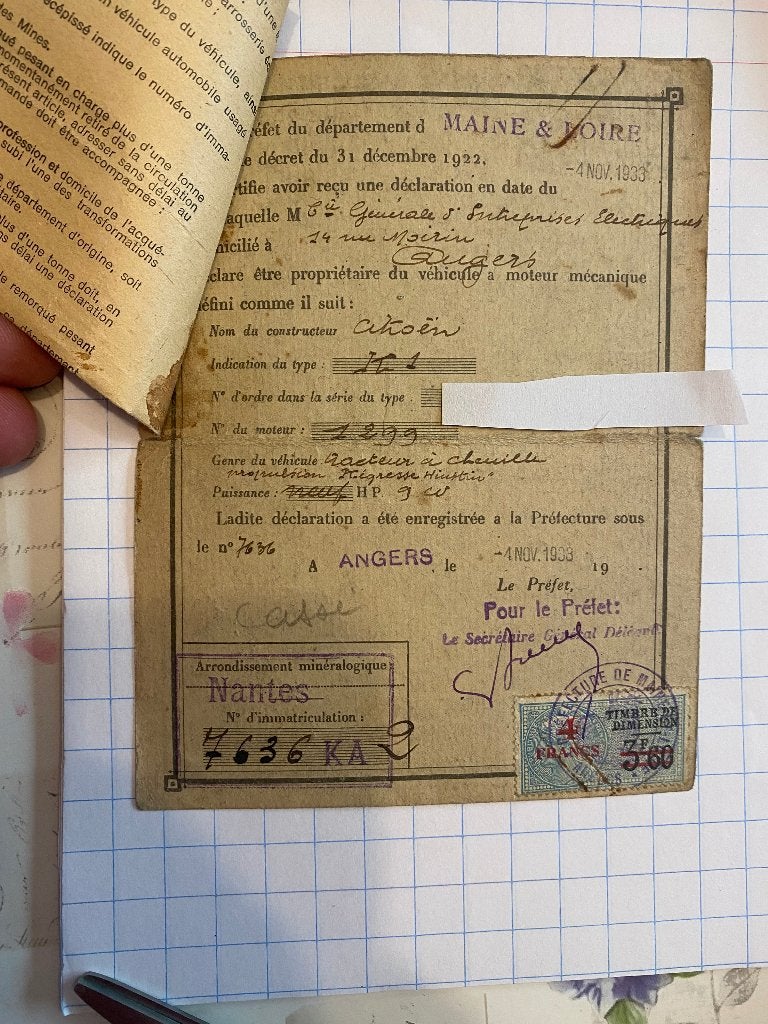 d'une
carrosserie
type du véhicule, ains
un véhicule automobile usagé
récépissé indique le numéro d'imma-
des Mines.
qué pesant en charge plus d'une tonne
momentanément retiré de la circulation
présent article, adresser sans délai au
mande doit être accompagnée :
profession et domicile de l'acqué-
subi l'une des transformations
département d'origine, soit
taire.
plus d'une tonne doit, en
ns délai une déclaration
le remorqué pesant
département
éfet du département d MAINE & LOIRE
e décret du 31 décembre 1922,
-4 NOV. 1933
rtifie avoir reçu une déclaration en date du
laquelle M Cie Générale d'Entreprises Electriques
micilié à 14 rue Moirin
Angers
clare être propriétaire du véhicule à moteur mécanique
éfini comme il suit :
Nom du constructeur Citroën
Indication du type : K 1
N° d'ordre dans la série du type :
N° du moteur : 1299
Genre du véhicule Tracteur à chenille
propulsion Kégresse Hinstin
Puissance : neuf HP 9 cv
Ladite déclaration a été enregistrée a la Préfecture sous
le n° 7636
A ANGERS, le -4 NOV. 1933 19
Le Préfet,
Cassé
Pour le Préfet:
Le Secrétaire Général Délégué
Arrondissement minéralogique :
Nantes
N° d'immatriculation :
7636 KA 2
TIMBRE DE
DIMENSION
4
FRANCS
3.60